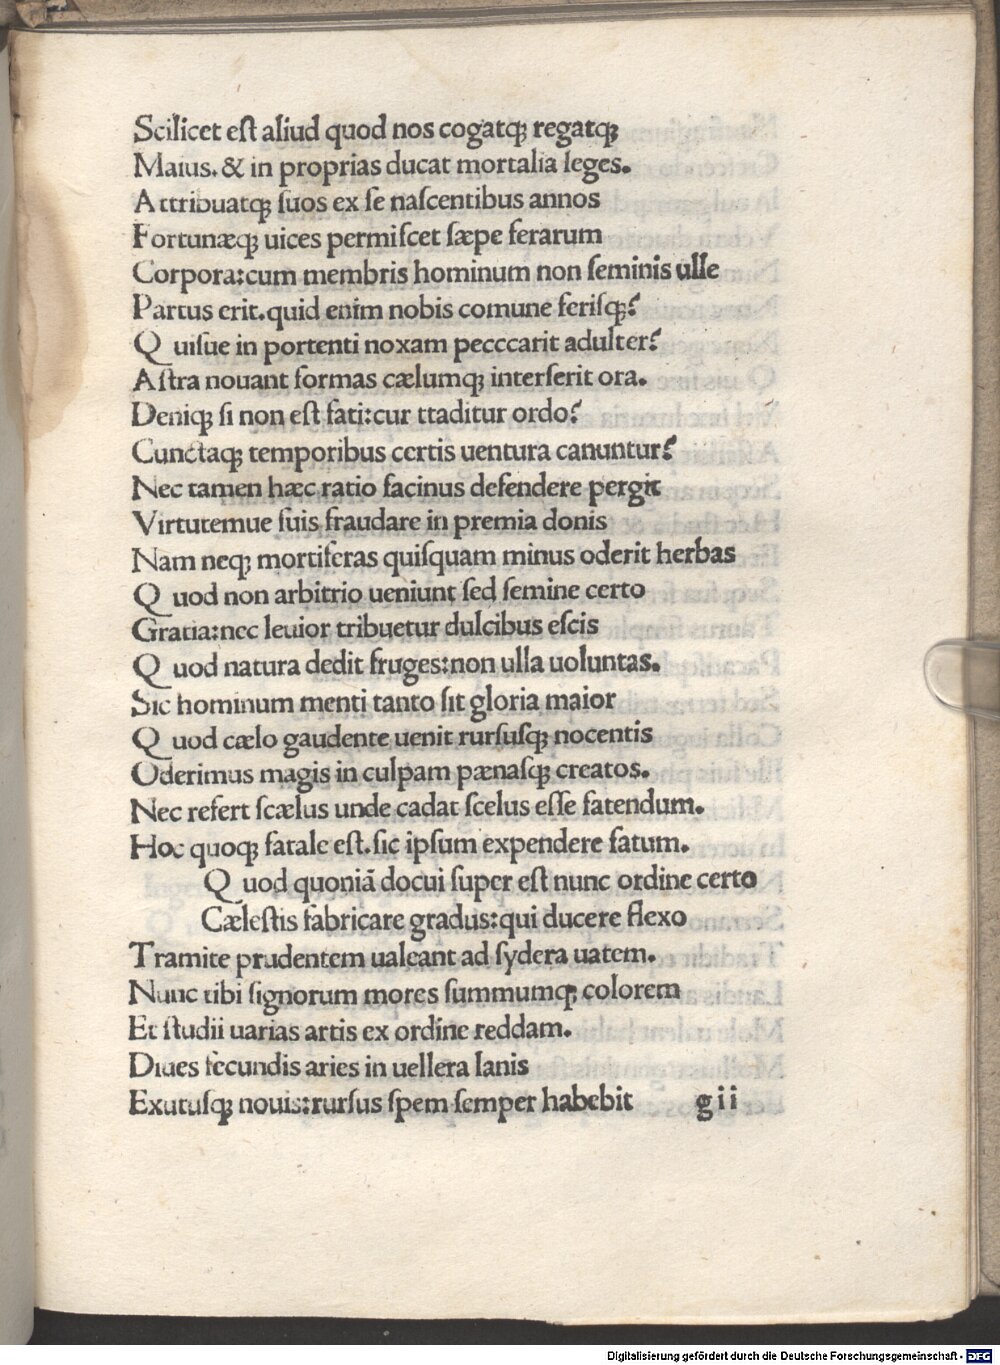 Scilicet eſt aliud quod nos cogatqꝫ regatqꝫ
Maius. & in proprias ducat mortalia leges.
Attribuatqꝫ ſuos ex ſe naſcentibus annos
Fortunæqꝫ uices permiſcet ſæpe ferarum
Corpora:cum membris hominum non ſeminis ulle
Partus erit.quid enim nobis comune feriſqꝫ?
Q uiſue in portenti noxam pecccarit adulter?
Aſtra nouant formas cælumqꝫ interſerit ora.
Deniqꝫ ſi non eſt fati:cur ttaditur ordo?
Cunctaqꝫ temporibus certis uentura canuntur?
Nec tamen hæc ratio facinus defendere pergit
Virtutemue ſuis fraudare in premia donis
Nam neqꝫ mortiferas quiſquam minus oderit herbas
Q uod non arbitrio ueniunt ſed ſemine certo
Gratia:nec leuior tribuetur dulcibus eſcis
Q uod natura dedit fruges:non ulla uoluntas.
Sic hominum menti tanto ſit gloria maior
Q uod cælo gaudente uenit rurſuſqꝫ nocentis
Oderimus magis in culpam pænaſqꝫ creatos.
Nec refert ſcælus unde cadat ſcelus eſſe fatendum.
Hoc quoqꝫ fatale eſt.ſic ipſum expendere fatum.
Q uod quoniā docui ſuper eſt nunc ordine certo
Cæleſtis fabricare gradus:qui ducere flexo
Tramite prudentem ualeant ad ſydera uatem.
Nunc tibi ſignorum mores ſummumqꝫ colorem
Et ſtudii uarias artis ex ordine reddam.
Diues fecundis aries in uellera lanis
Exutuſqꝫ nouis:rurſus ſpem ſemper habebit g ii
Digitalisierung gefördert durch die Deutsche Forschungsgemeinschaft - DFG